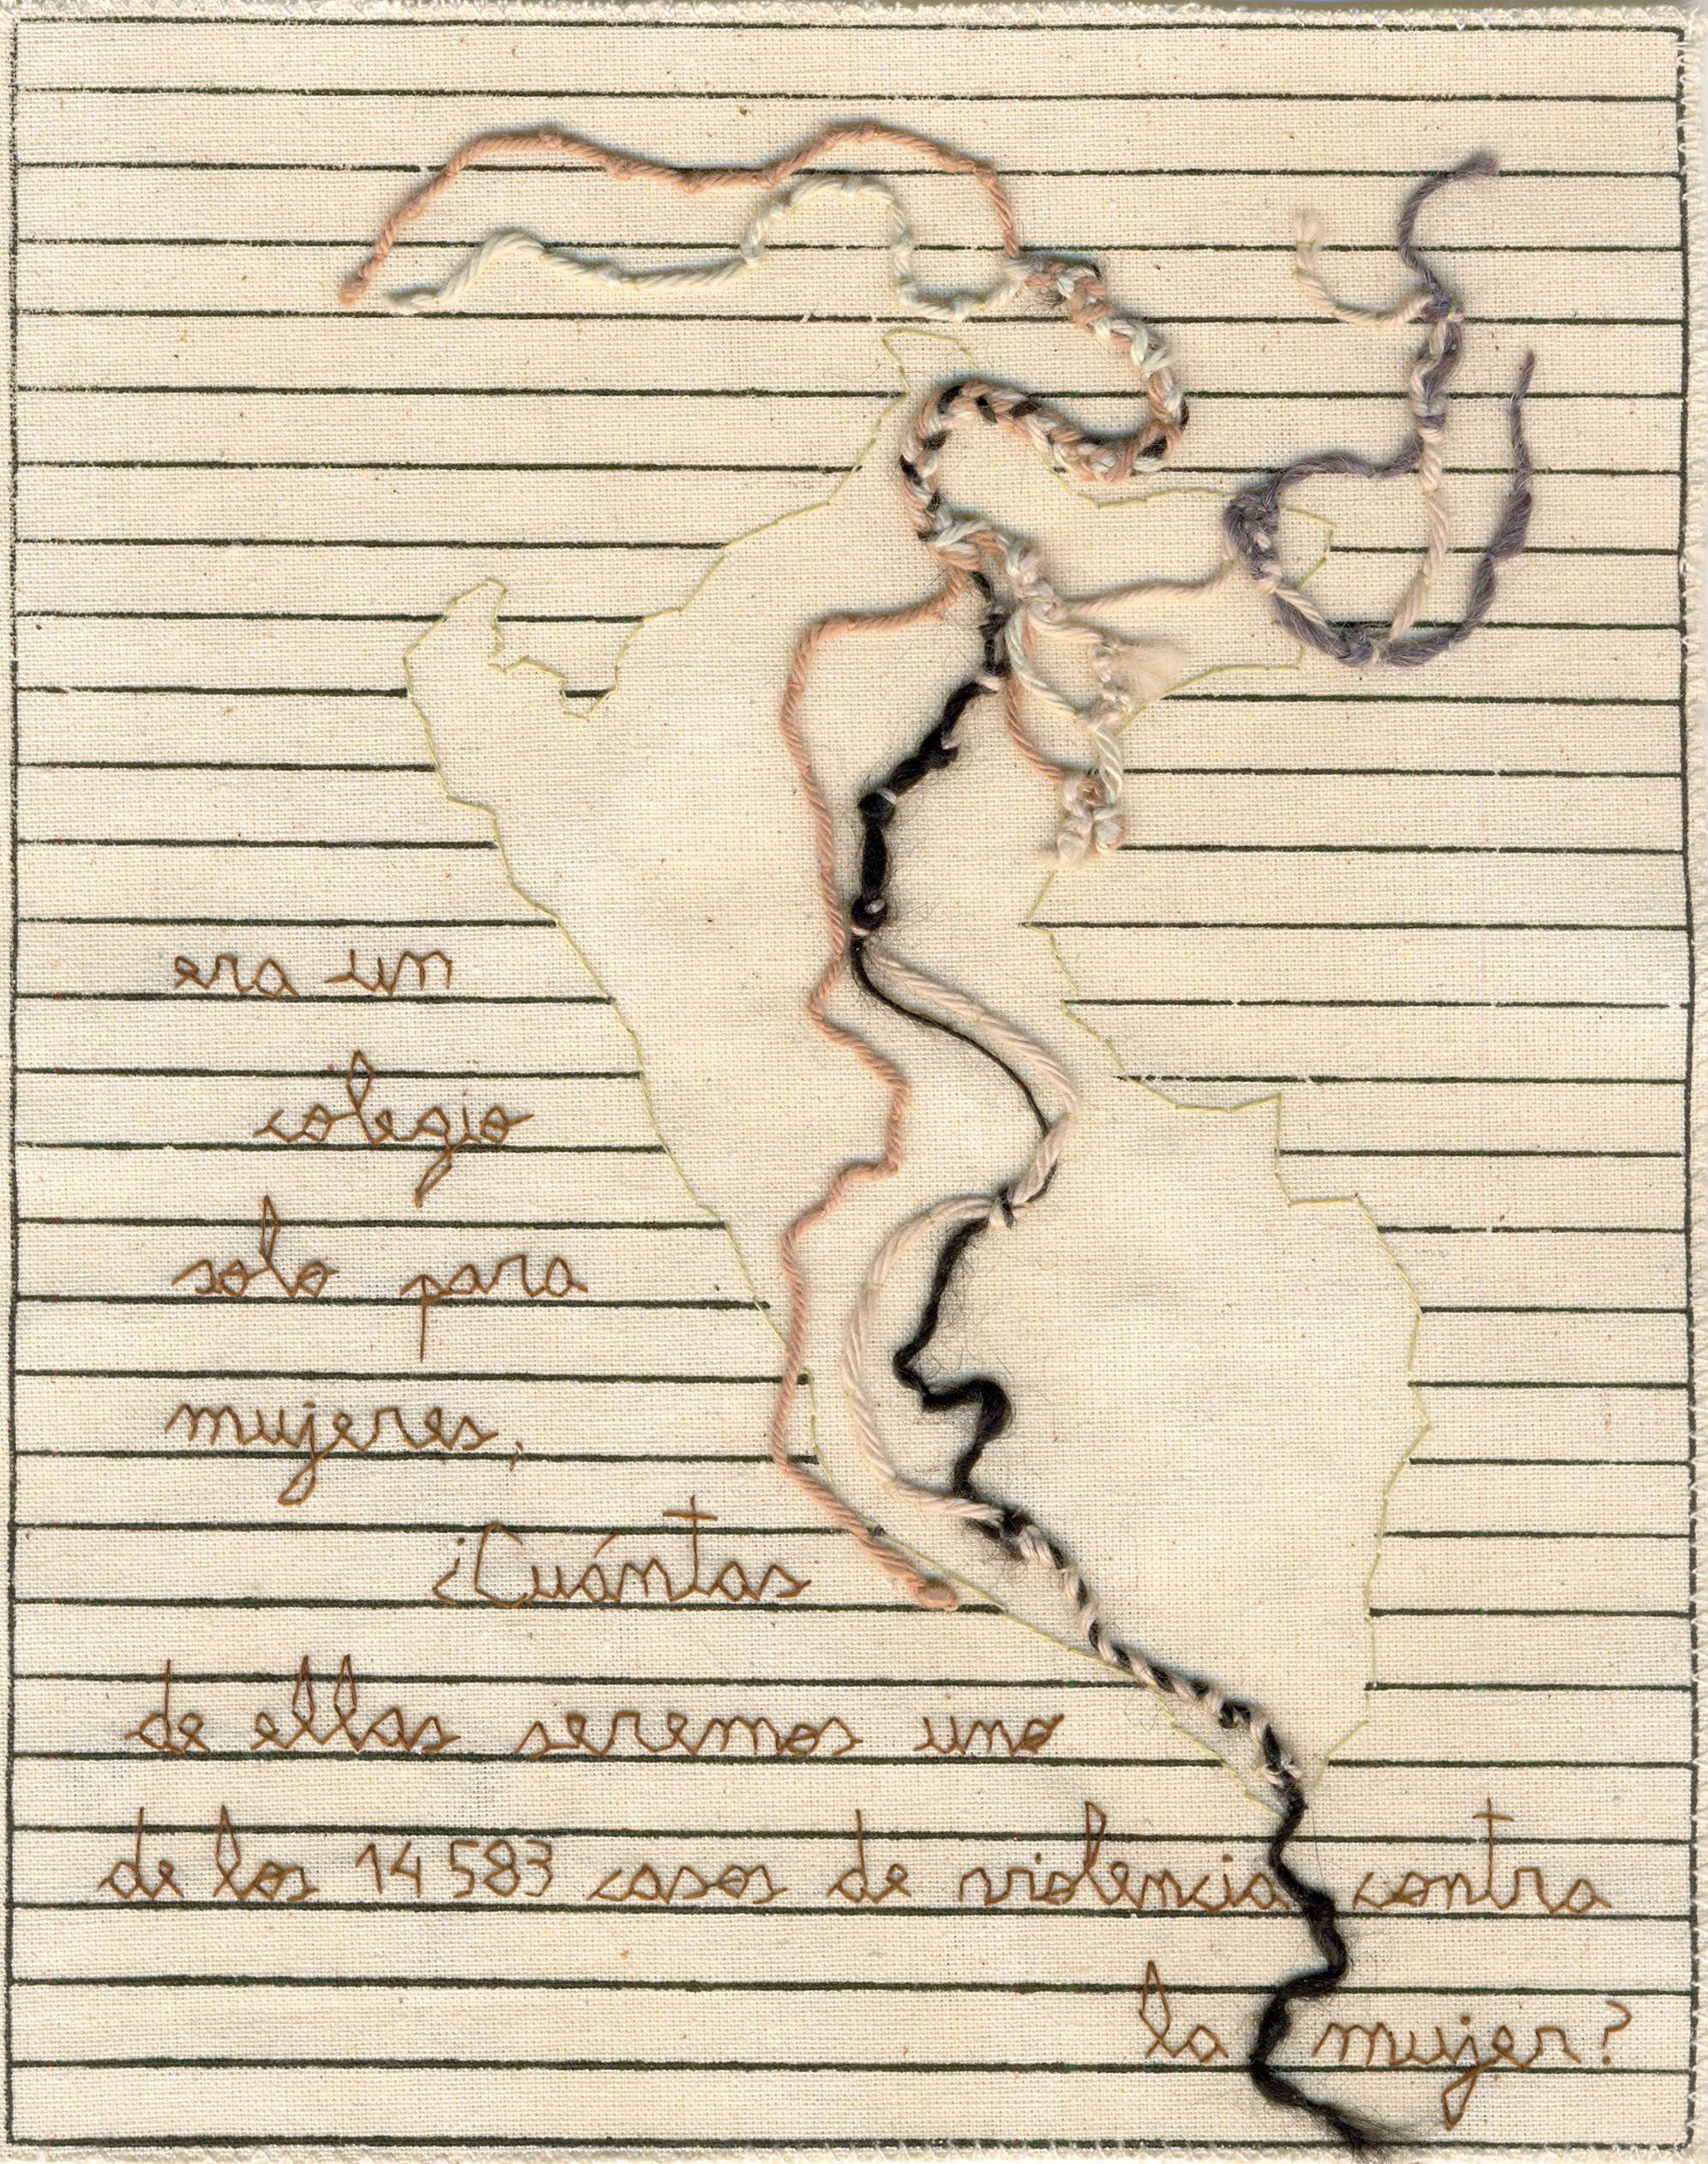 era un
colegio
solo para
mujeres,
¿Cuántas
de ellas seremos uno
de los 14 583 casos de violencia contra
la mujer?